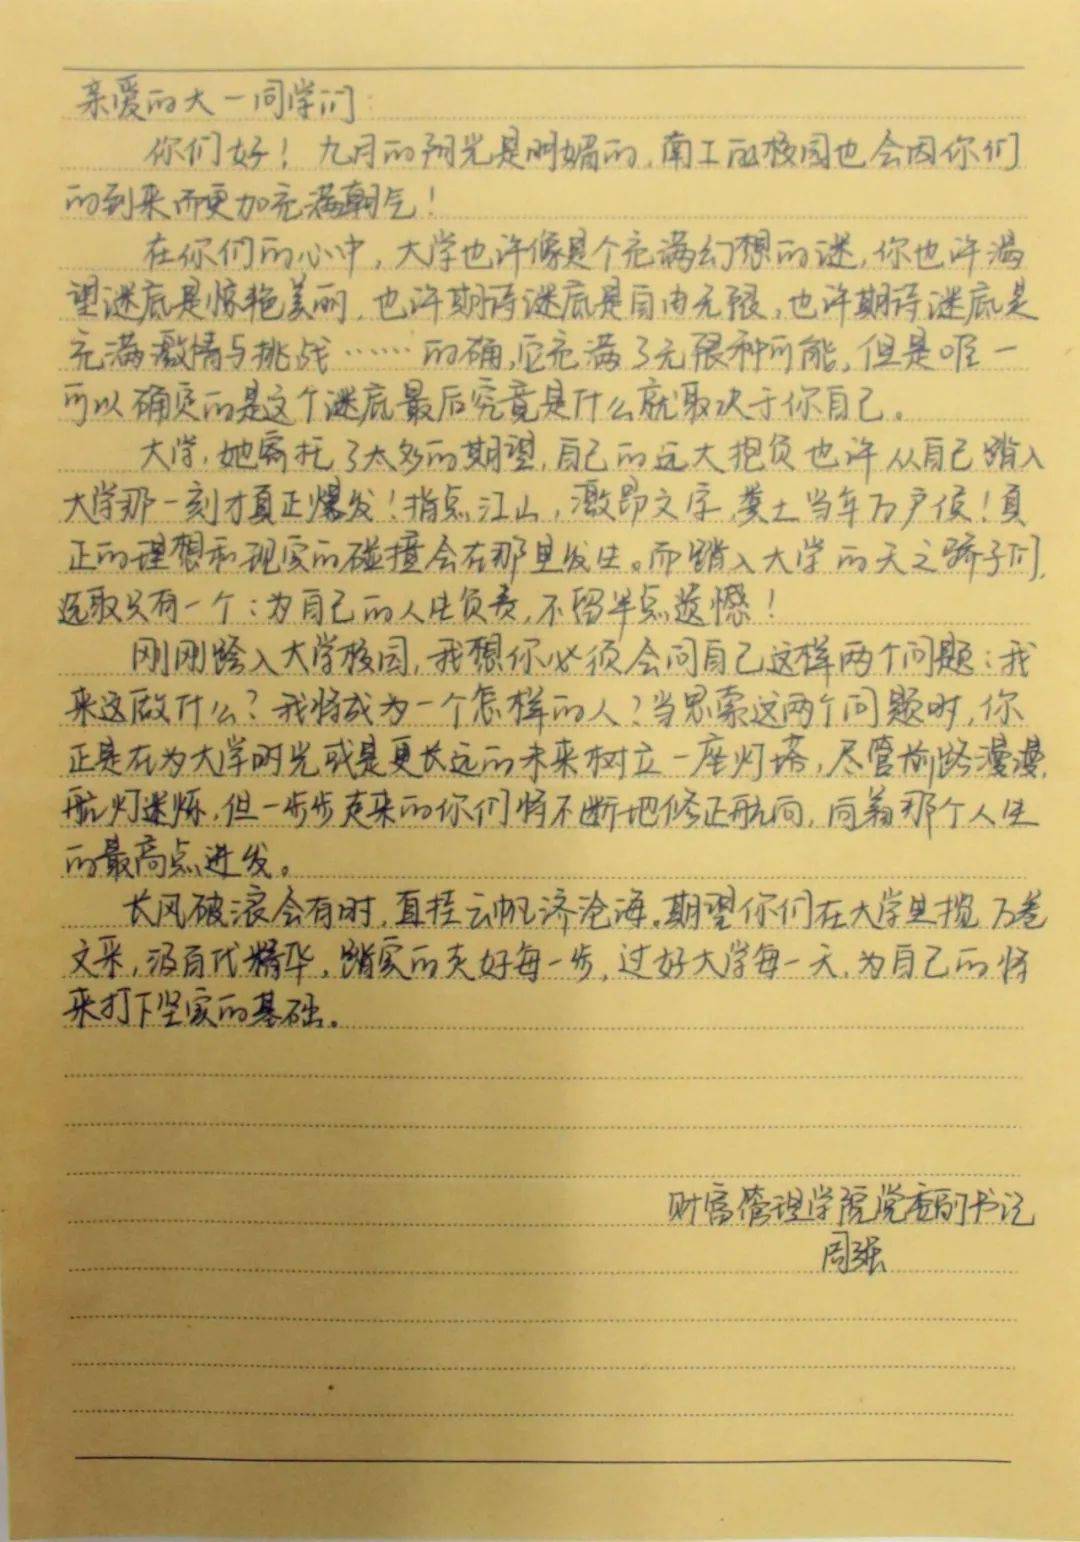 亲爱的大一同学们:
你们好！九月的阳光是明媚的,南工的校园也会因你们
的到来而更加充满朝气！
在你们的心中,大学也许像是个充满幻想的谜,你也许渴
望谜底是惊艳美丽,也许期待谜底是自由无限,也许期待谜底是
充满激情与挑战……的确,它充满了无限种可能,但是唯一
可以确定的是这个谜底最后究竟是什么就取决于你自己。
大学,她寄托了太多的期望,自己的远大抱负也许从自己踏入
大学那一刻才真正爆发！指点江山,激昂文字,粪土当年万户侯！真
正的理想和现实的碰撞会在那里发生。而踏入大学的天之骄子们,
选取只有一个:为自己的人生负责,不留半点遗憾！
刚刚跨入大学校园,我想你必须会问自己这样两个问题:我
来这做什么？我将成为一个怎样的人？当思索这两个问题时,你
正是在为大学时光或是更长远的未来树立一座灯塔,尽管前路漫漫,
航灯迷烁,但一步步走来的你们将不断地修正航向,向着那个人生
的最高点进发。
长风破浪会有时,直挂云帆济沧海。期望你们在大学里揽万卷
文采,汲百代精华,踏实的走好每一步,过好大学每一天,为自己的将
来打下坚实的基础。
财富管理学院党委副书记
周强